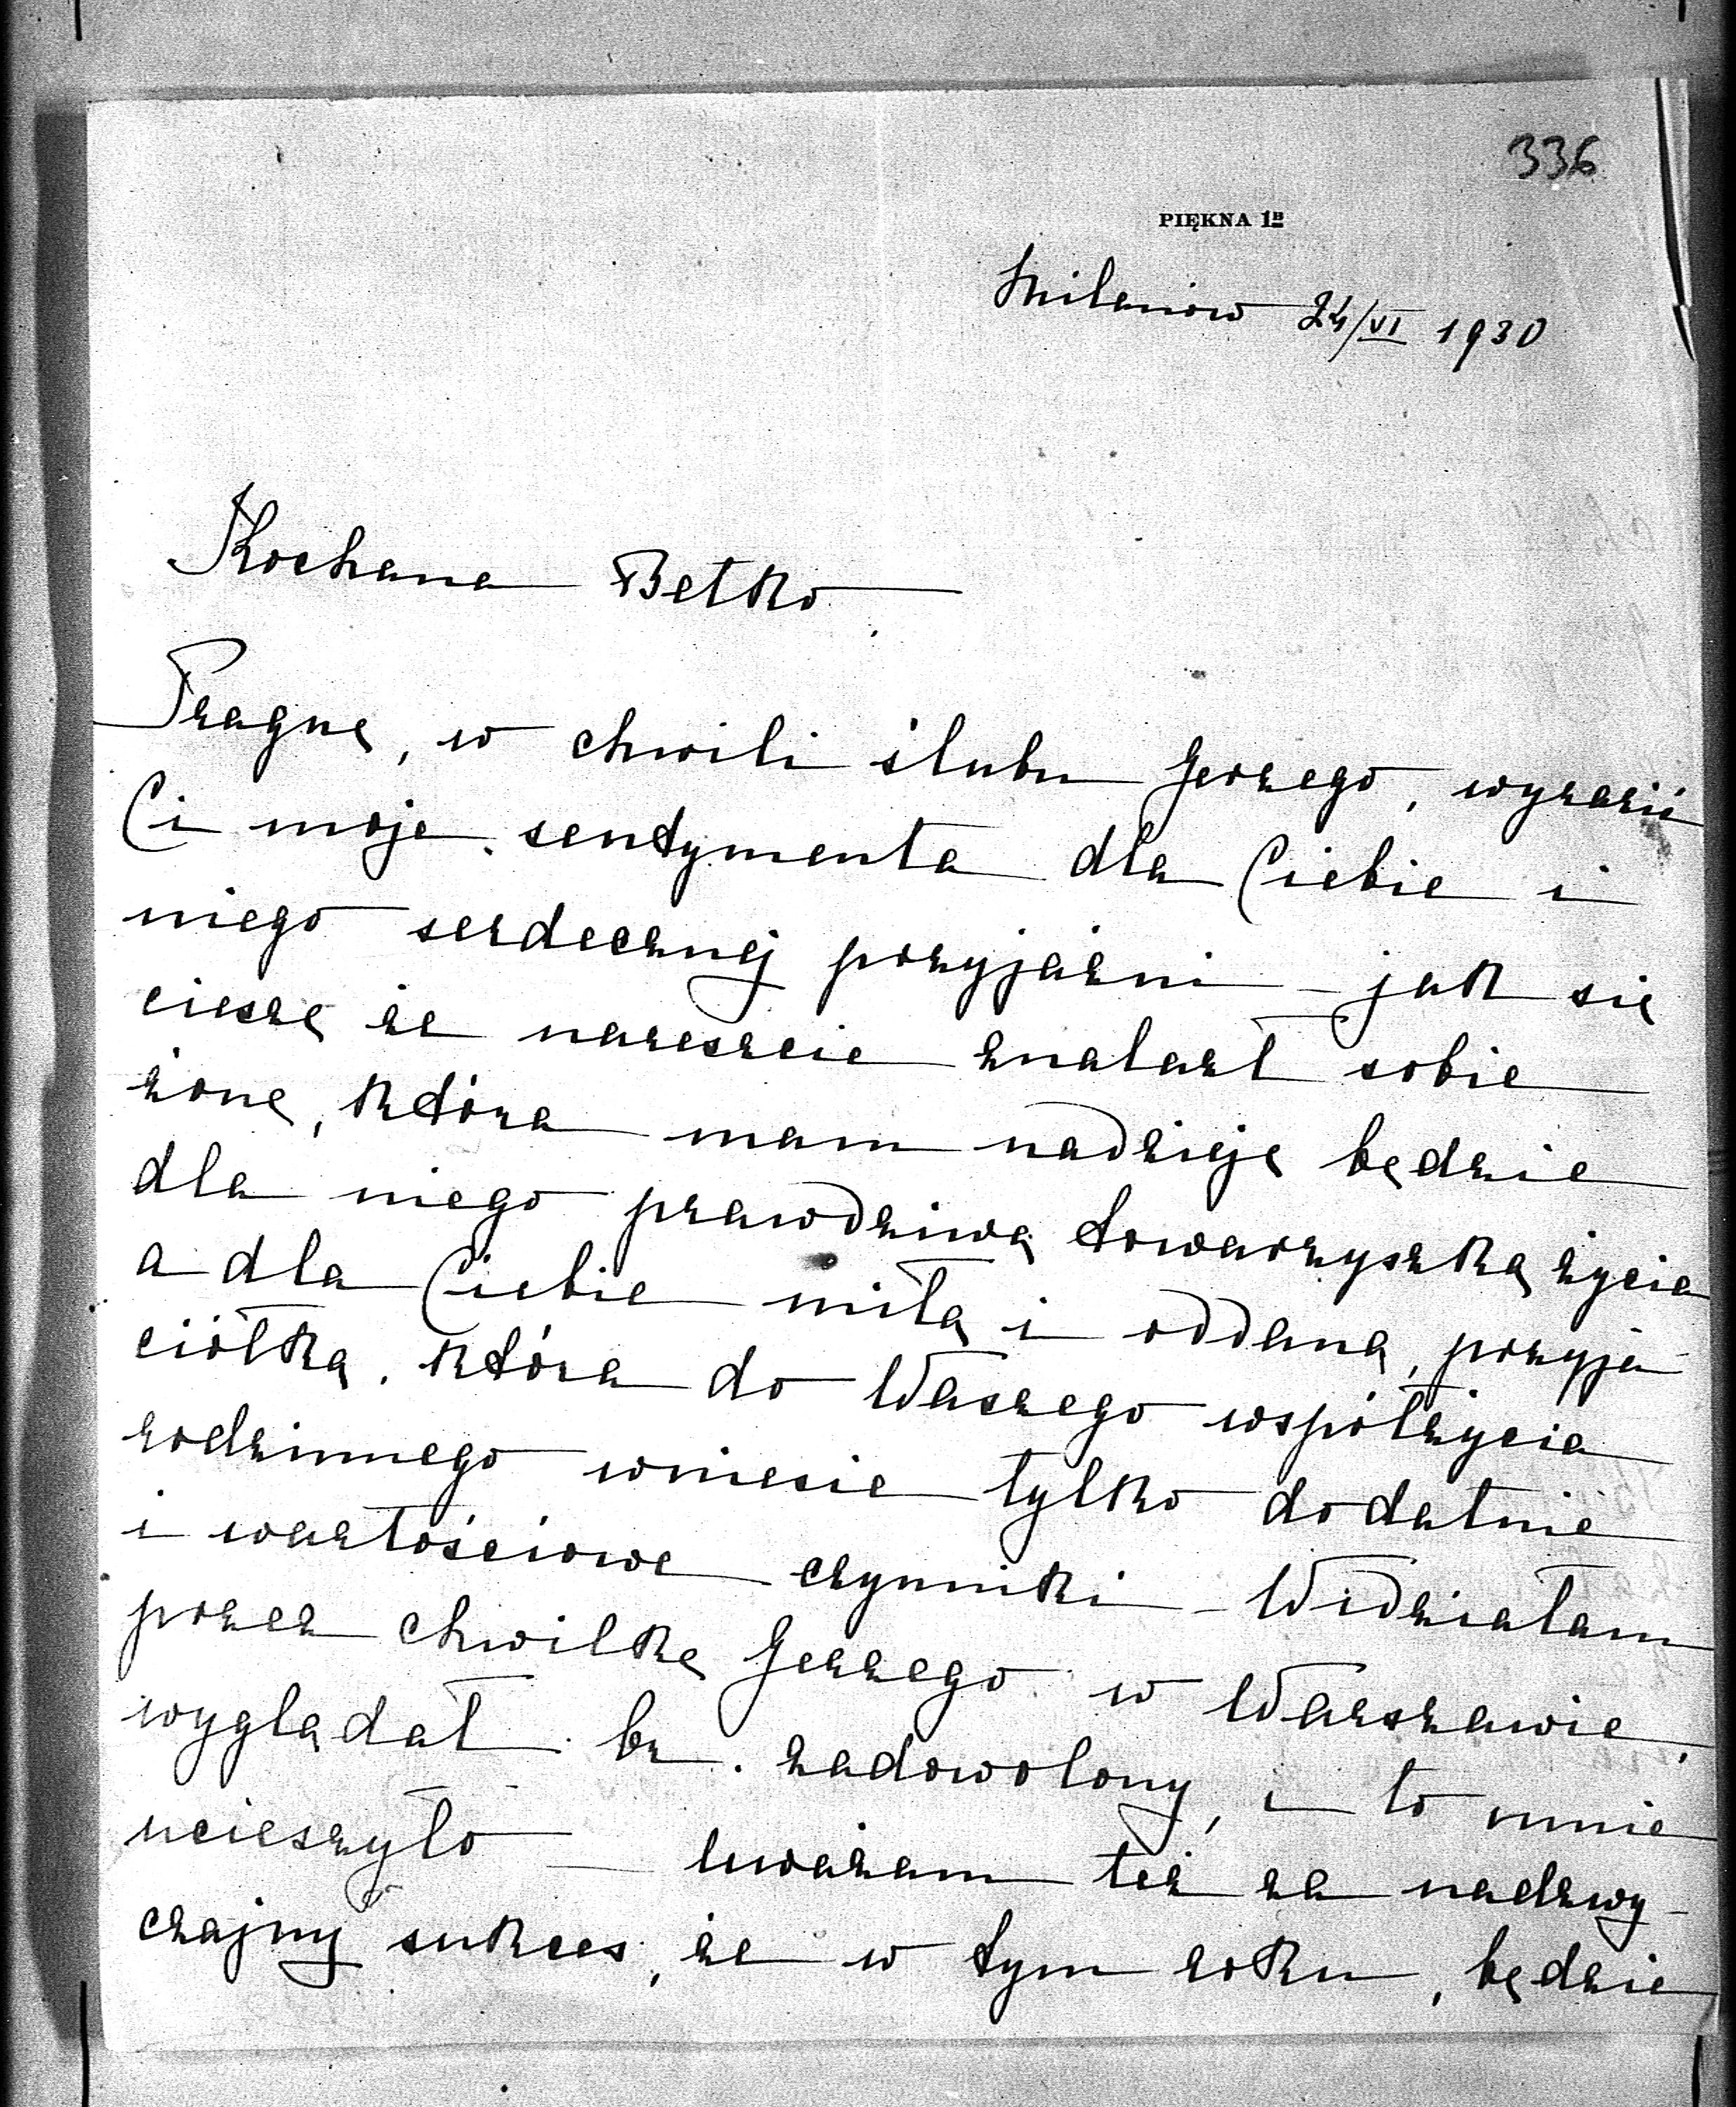 336
PIĘKNA 1B
Milanów 24/VI 1930
Kochana Betko
Pragnę, w chwili ślubu Jerzego, wyrazić
Ci moje sentymenta dla Ciebie i
niego serdecznej przyjaźni – jak się
cieszę że nareszcie znalazł sobie
żonę, która mam nadzieję będzie
dla niego prawdziwą towarzyszką życia
a dla Ciebie miłą i oddaną, przyja
ciółką, która do Waszego współżycia
rodzinnego wniesie tylko dodatnie
i wartościowe czynniki – Widziałam
przez chwilkę Jerzego w Warszawie,
wyglądał bz. zadowolony, i to mnie
ucieszyło — Uważam też za nadzwy-
czajny sukces, że w tym roku, będzie